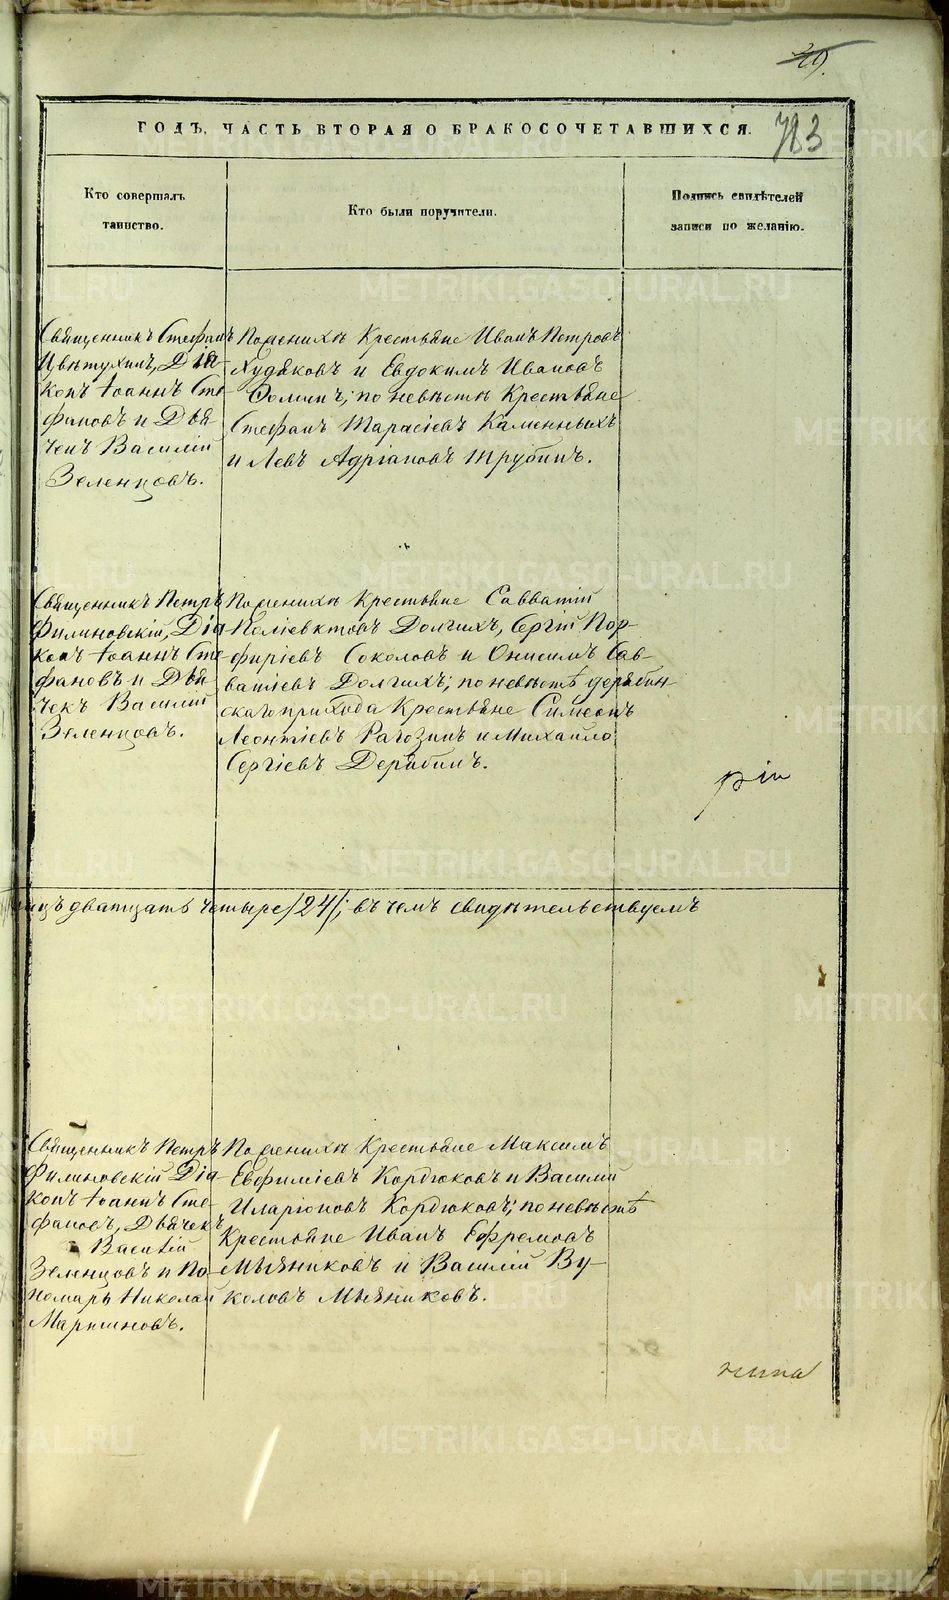 29.
ГОДЪ, ЧАСТЬ ВТОРАЯ О БРАКОСОЧЕТАВШИХСЯ.
783
Кто совершалъ
таинство.
Кто были поручители.
Подпись свидѣтелей
записи по желанію.
Священникъ Стефанъ
Цвѣтухинъ, Діа-
конъ Іоаннъ Сте-
фановъ и Дья-
чекъ Василій
Зеленцовъ.
По женихѣ Крестьяне Иванъ Петровъ
Худяковъ и Евдокимъ Ивановъ
Ѳоминъ; по невѣстѣ Крестьяне
Стефанъ Тарасіевъ Каменныхъ
и Левъ Адріановъ Трубинъ.
Священникъ Петръ
Филиновскій, Діа-
конъ Іоаннъ Сте-
фановъ и Дья-
чекъ Василій
Зеленцовъ.
По женихѣ Крестьяне Савватій
Поліевктовъ Долгихъ, Сергій Пор-
фиріевъ Соколовъ и Онисимъ Сав-
ватіевъ Долгихъ; по невѣстѣ дерябин-
скаго прихода Крестьяне Симеонъ
Леонтіевъ Рагозинъ и Михаило
Сергіевъ Дерябинъ.
ріи
двадцать четыре /24/; въ чемъ свидѣтельствуемъ
Священникъ Петръ
Филиновскій Діа-
конъ Іоаннъ Сте-
фановъ, Дьячекъ
Василій
Зеленцовъ и По-
номарь Николай
По женихѣ Крестьяне Максимъ
Евфиміевъ Кордюковъ и Василій
Иларіоновъ Кордюковъ; по невѣстѣ
Крестьяне Иванъ Ефремовъ
Мѣяниковъ и Василій Ву-
коловъ Мѣяниковъ.
METRIKI.GASO-URAL.RU